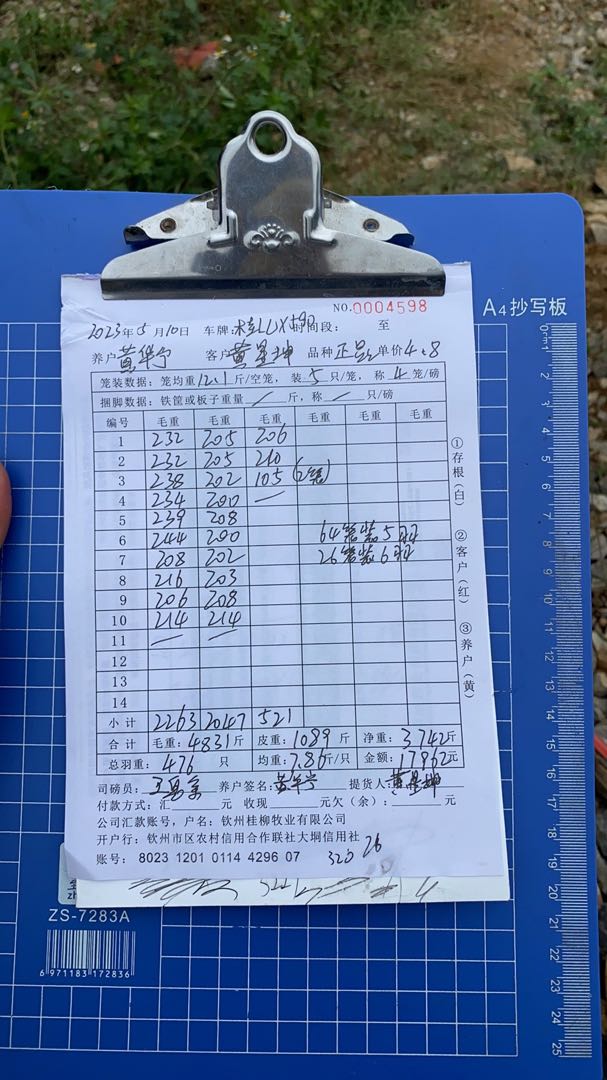 NO.0004598
A4抄写板
2023年5月10日 车牌: 时间段: 至
养户黄华宁 客户黄星坤 品种正 单价4.8
笼装数据: 笼均重12.1斤/空笼, 装5只/笼, 称4笼/磅
捆脚数据: 铁筐或板子重量/斤, 称/只/磅
编号 毛重 毛重 毛重 毛重 毛重 毛重
1 232 205 206
2 232 205 210
3 238 202 105 (2笼)
4 234 200 —
5 239 208
6 244 200 64笼装5羽
7 208 202 26笼装6羽
8 216 203
9 206 208
10 214 214
11 — —
12
13
14
小计 2263 2047 521
合计 毛重:4831斤 皮重:1089斤 净重:3742斤
总羽重: 476只 均重:7.86斤/只 金额:17962元
司磅员: 养户签名:黄华宁 提货人:黄星坤
付款方式: 汇 元 收现 元欠(余): 元
公司汇款账号, 户名: 钦州桂柳牧业有限公司
开户行: 钦州市区农村信用合作联社大垌信用社
账号: 8023 1201 0114 4296 07 320 26
①存根(白)
②客户(红)
③养户(黄)
ZS-7283A
6 971183 172836
0 1 2 3 4 5 6 7 8 9 10 11 12 13 14 15 16 17 18 19 20 21 22 23 24 25